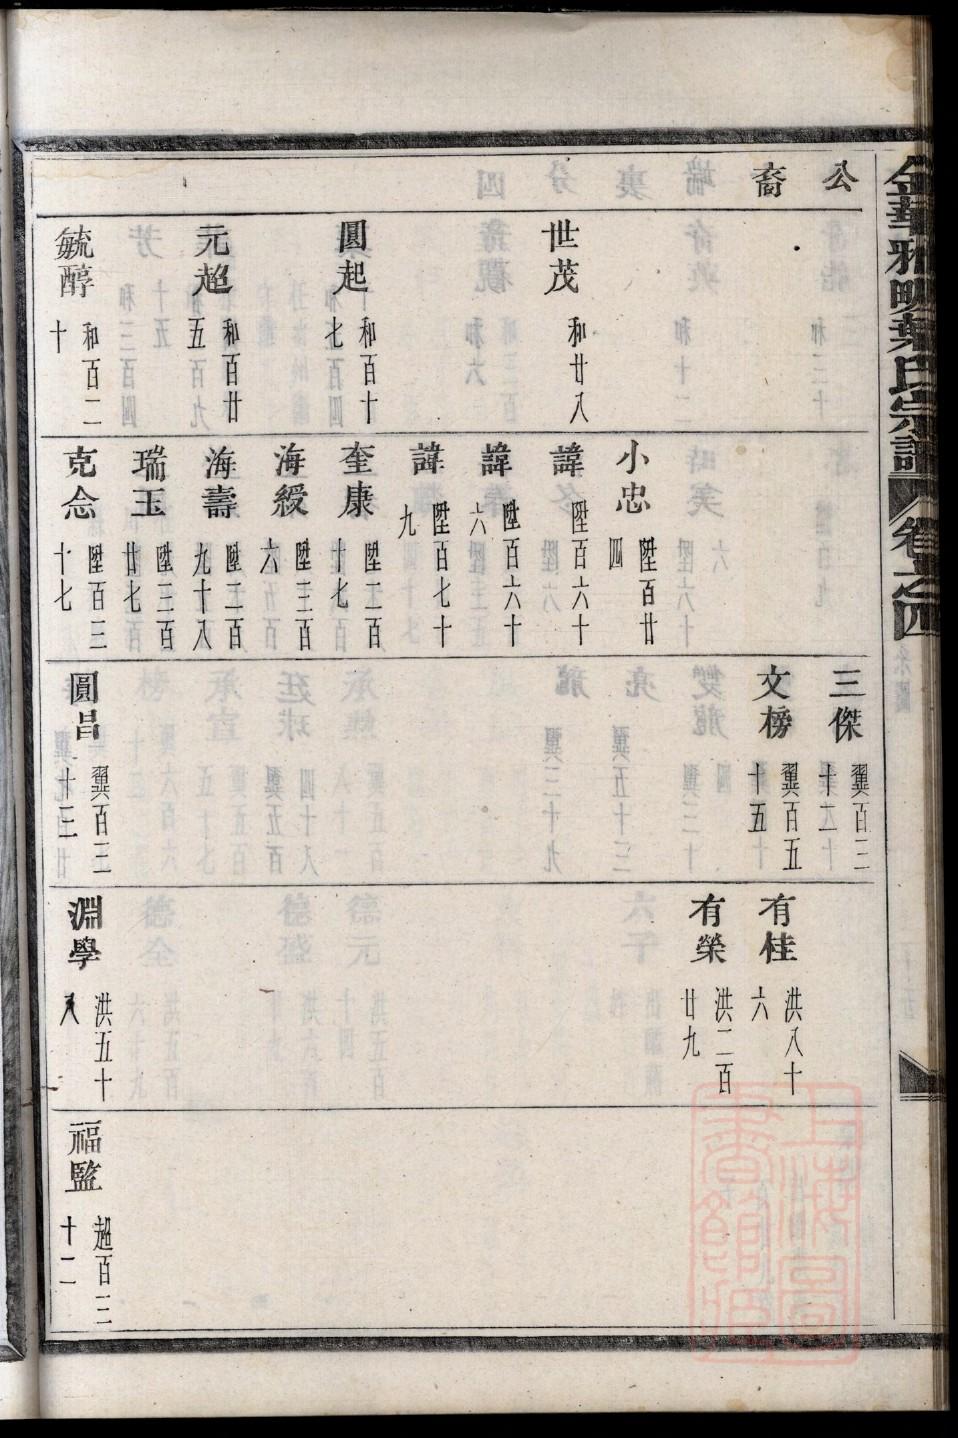 金華雅明葉氏宗譜
卷之四
公
裔
世茂 和廿八
圓起 和百十七
元超 和百廿五
毓醇 和百二十
小忠 陞百廿四
諱 陞百六十
諱 陞百六十六
諱 陞百七十九
奎康 陞二百十七
海綬 陞三百六
海壽 陞二百九十八
瑞玉 陞三百廿七
克念 陞百三十七
三傑 翼百三十二
文榜 翼百五十五
圓昌 翼百三十三
有桂 洪八十六
有榮 洪二百廿九
淵學 洪五十八
福監 超百三十二
上海圖書館藏